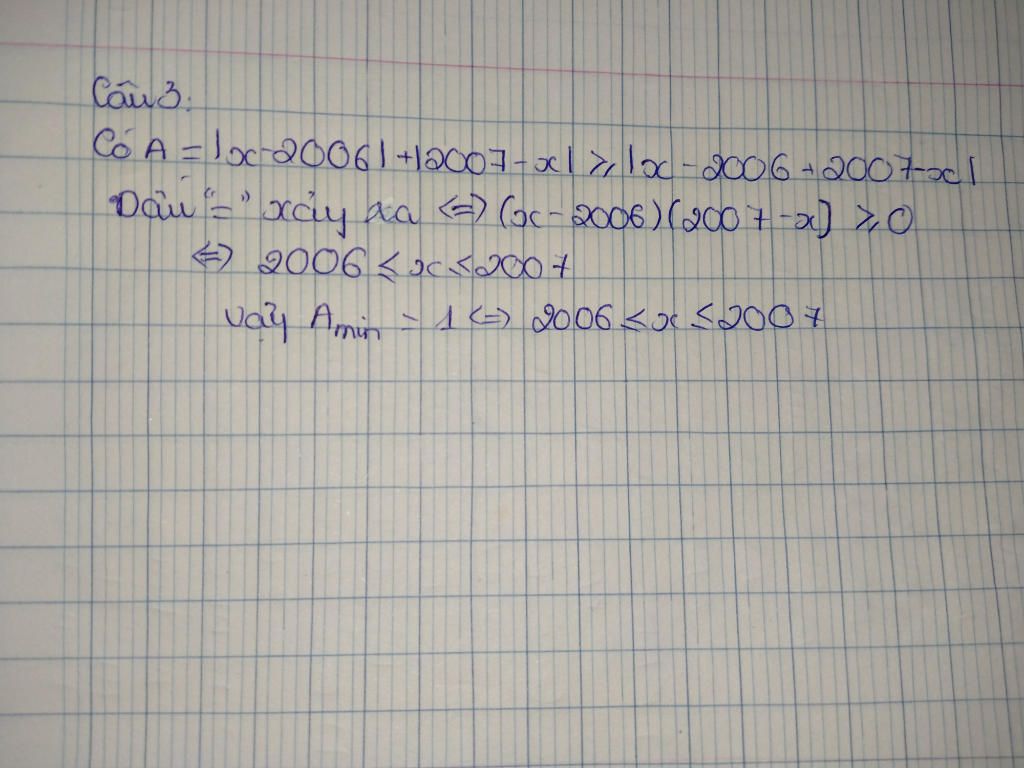 Câu 3:
Có A = |x - 2006| + |2007 - x| ≥ |x - 2006 + 2007 - x|
Dấu "=" xảy xa <=> (x - 2006)(2007 - x) ≥ 0
<=> 2006 ≤ x ≤ 2007
Vậy Amin = 1 <=> 2006 ≤ x ≤ 2007